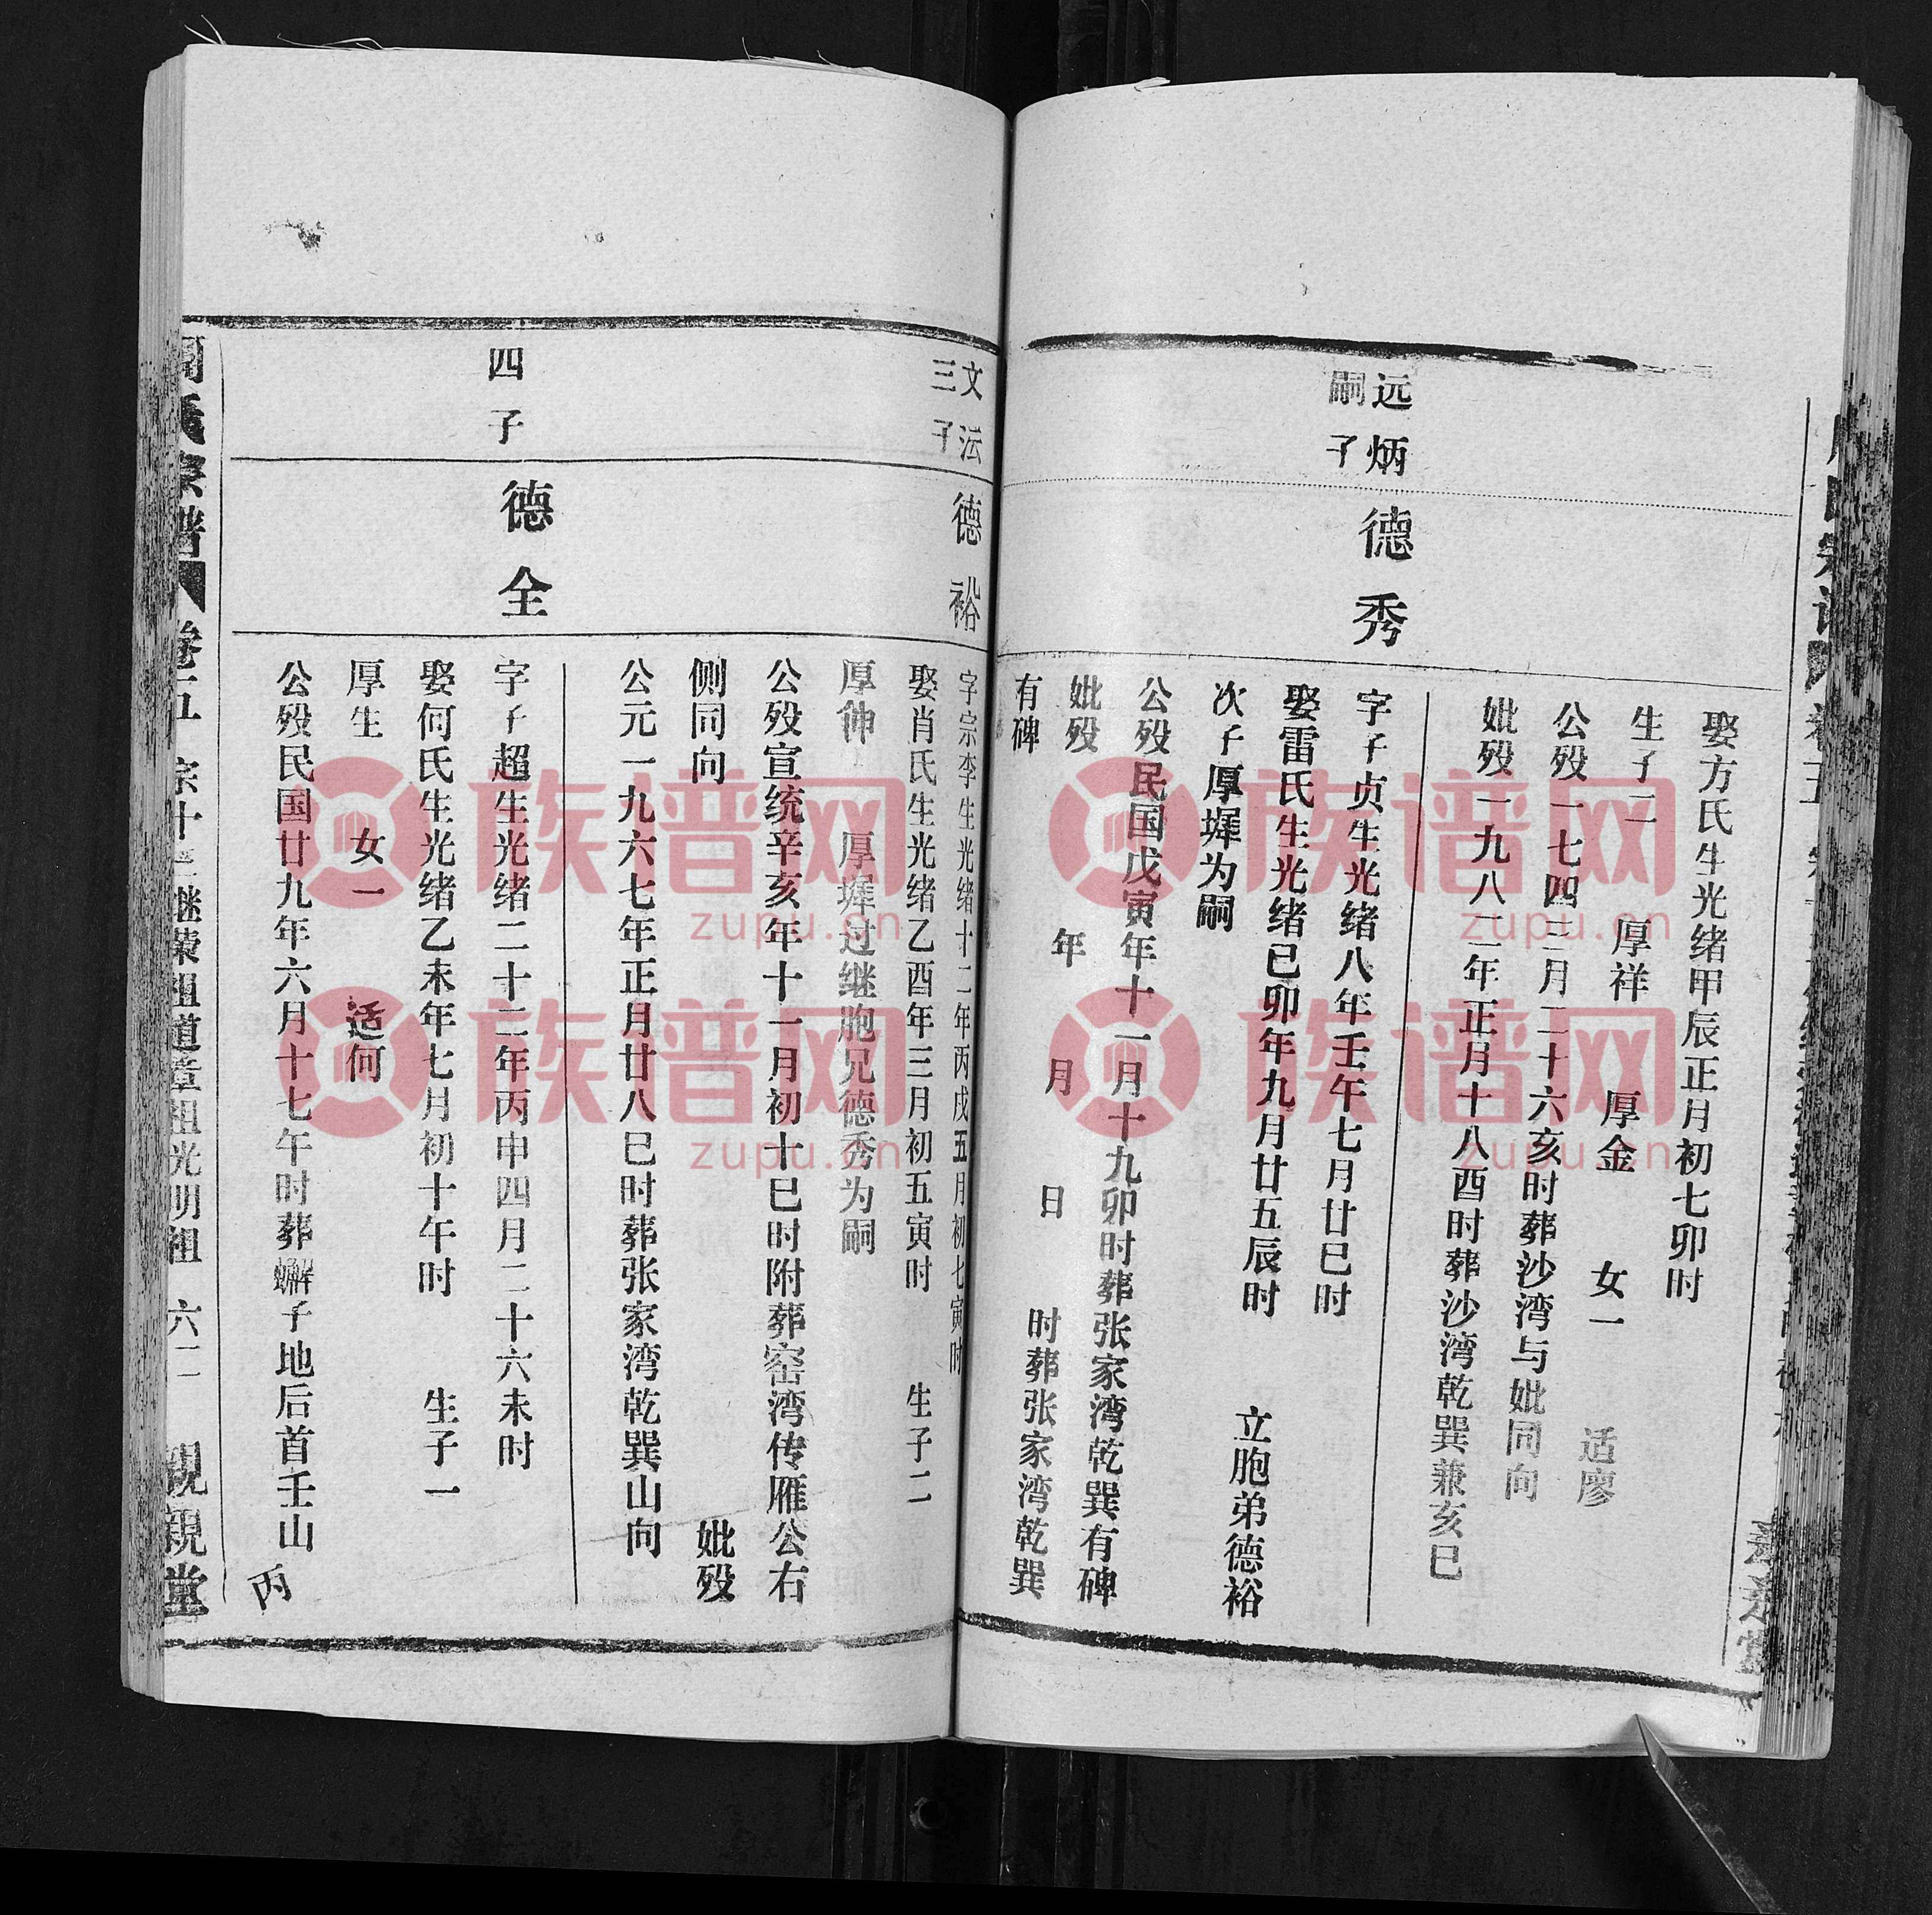 娶方氏生光绪甲辰正月初七卯时
生子二 厚祥 厚金 女一 适廖
公殁一七四三月二十六亥时葬沙湾与妣同向
妣殁一九八二年正月十八酉时葬沙湾乾巽兼亥巳
远炳
嗣子
德秀
字子贞生光绪八年壬午七月廿巳时
娶雷氏生光绪己卯年九月廿五辰时 立胞弟德裕
次子厚墀为嗣
公殁民国戊寅年十一月十九卯时葬张家湾乾巽有碑
妣殁 年 月 日 时葬张家湾乾巽
有碑
文沄
三子
德裕
字宗李生光绪十二年丙戌五月初七寅时
娶肖氏生光绪乙酉年三月初五寅时 生子二
厚帅 厚墀过继胞兄德秀为嗣
公殁宣统辛亥年十一月初十巳时附葬窑湾传雁公右
侧同向 妣殁
公元一九六七年正月廿八巳时葬张家湾乾巽山向
四子
德全
字子超生光绪二十二年丙申四月二十六未时
娶何氏生光绪乙未年七月初十午时 生子一
厚生 女一 适何
公殁民国廿九年六月十七午时葬蠏子地后首壬山
丙
氏宗谱 卷五 宗十三继荣祖道章祖光明祖 六二 親親堂
族谱网
zupu.cn
族谱网
zupu.cn
族谱网
zupu.cn
族谱网
zupu.cn